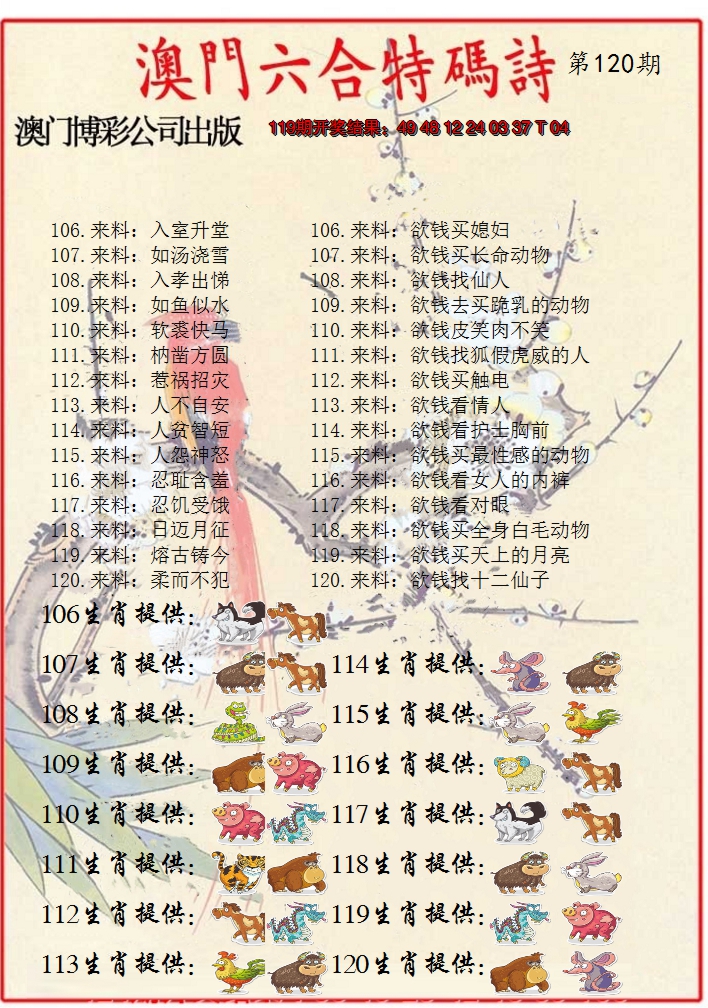 澳門六合特碼詩 第120期
澳门博彩公司出版 119期开奖结果：49 48 12 24 03 37 T 04
106.来料：入室升堂 106.来料：欲钱买媳妇
107.来料：如汤浇雪 107.来料：欲钱买长命动物
108.来料：入孝出悌 108.来料：欲钱找仙人
109.来料：如鱼似水 109.来料：欲钱去买跪乳的动物
110.来料：软裘快马 110.来料：欲钱皮笑肉不笑
111.来料：枘凿方圆 111.来料：欲钱找狐假虎威的人
112.来料：惹祸招灾 112.来料：欲钱买触电
113.来料：人不自安 113.来料：欲钱看情人
114.来料：人贫智短 114.来料：欲钱看护士胸前
115.来料：人怨神怒 115.来料：欲钱买最性感的动物
116.来料：忍耻含羞 116.来料：欲钱看女人的内裤
117.来料：忍饥受饿 117.来料：欲钱看对眼
118.来料：日迈月征 118.来料：欲钱买全身白毛动物
119.来料：熔古铸今 119.来料：欲钱买天上的月亮
120.来料：柔而不犯 120.来料：欲钱找十二仙子
106生肖提供：
107生肖提供： 114生肖提供：
108生肖提供： 115生肖提供：
109生肖提供： 116生肖提供：
110生肖提供： 117生肖提供：
111生肖提供： 118生肖提供：
112生肖提供： 119生肖提供：
113生肖提供： 120生肖提供：